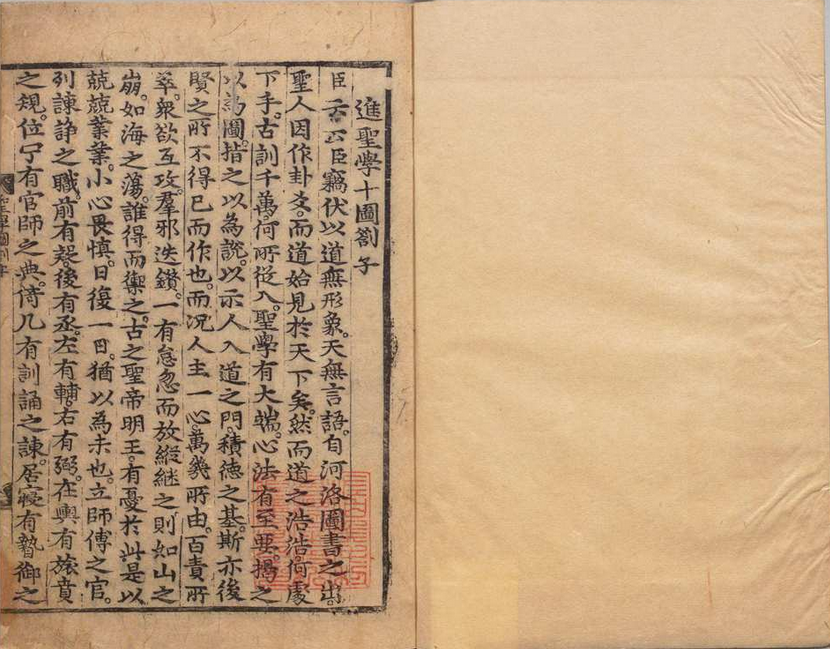 進聖學十圖劄子
臣云云臣竊伏以道無形象。天無言語。自河洛圖書之出。
聖人因作卦爻。而道始見於天下矣。然而道之浩浩。何處
下手。古訓千萬。何所從入。聖學有大端。心法有至要。揭之
以為圖。指之以為說。以示人入道之門。積德之基。斯亦後
賢之所不得已而作也。而況人主一心。萬幾所由。百責所
萃。衆欲互攻。羣邪迭鑽。一有怠忽而放縱継之。則如山之
崩。如海之蕩。誰得而禦之。古之聖帝明王。有憂於此。是以
兢兢業業。小心畏慎。日復一日。猶以為未也。立師傅之官。
列諫諍之職。前有疑。後有丞。左有輔。右有弼。在輿有旅賁
之規。位宁有官師之典。倚几有訓誦之諫。居寢有暬御之